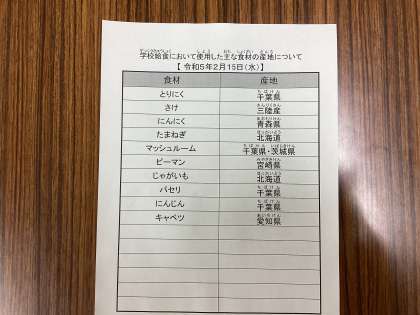 学校給食において使用した主な食材の産地について
【 令和5年2月15日(水)】
食材 産地
とりにく 千葉県
さけ 三陸産
にんにく 青森県
たまねぎ 北海道
マッシュルーム 千葉県・茨城県
ピーマン 宮崎県
じゃがいも 北海道
パセリ 千葉県
にんじん 千葉県
キャベツ 愛知県